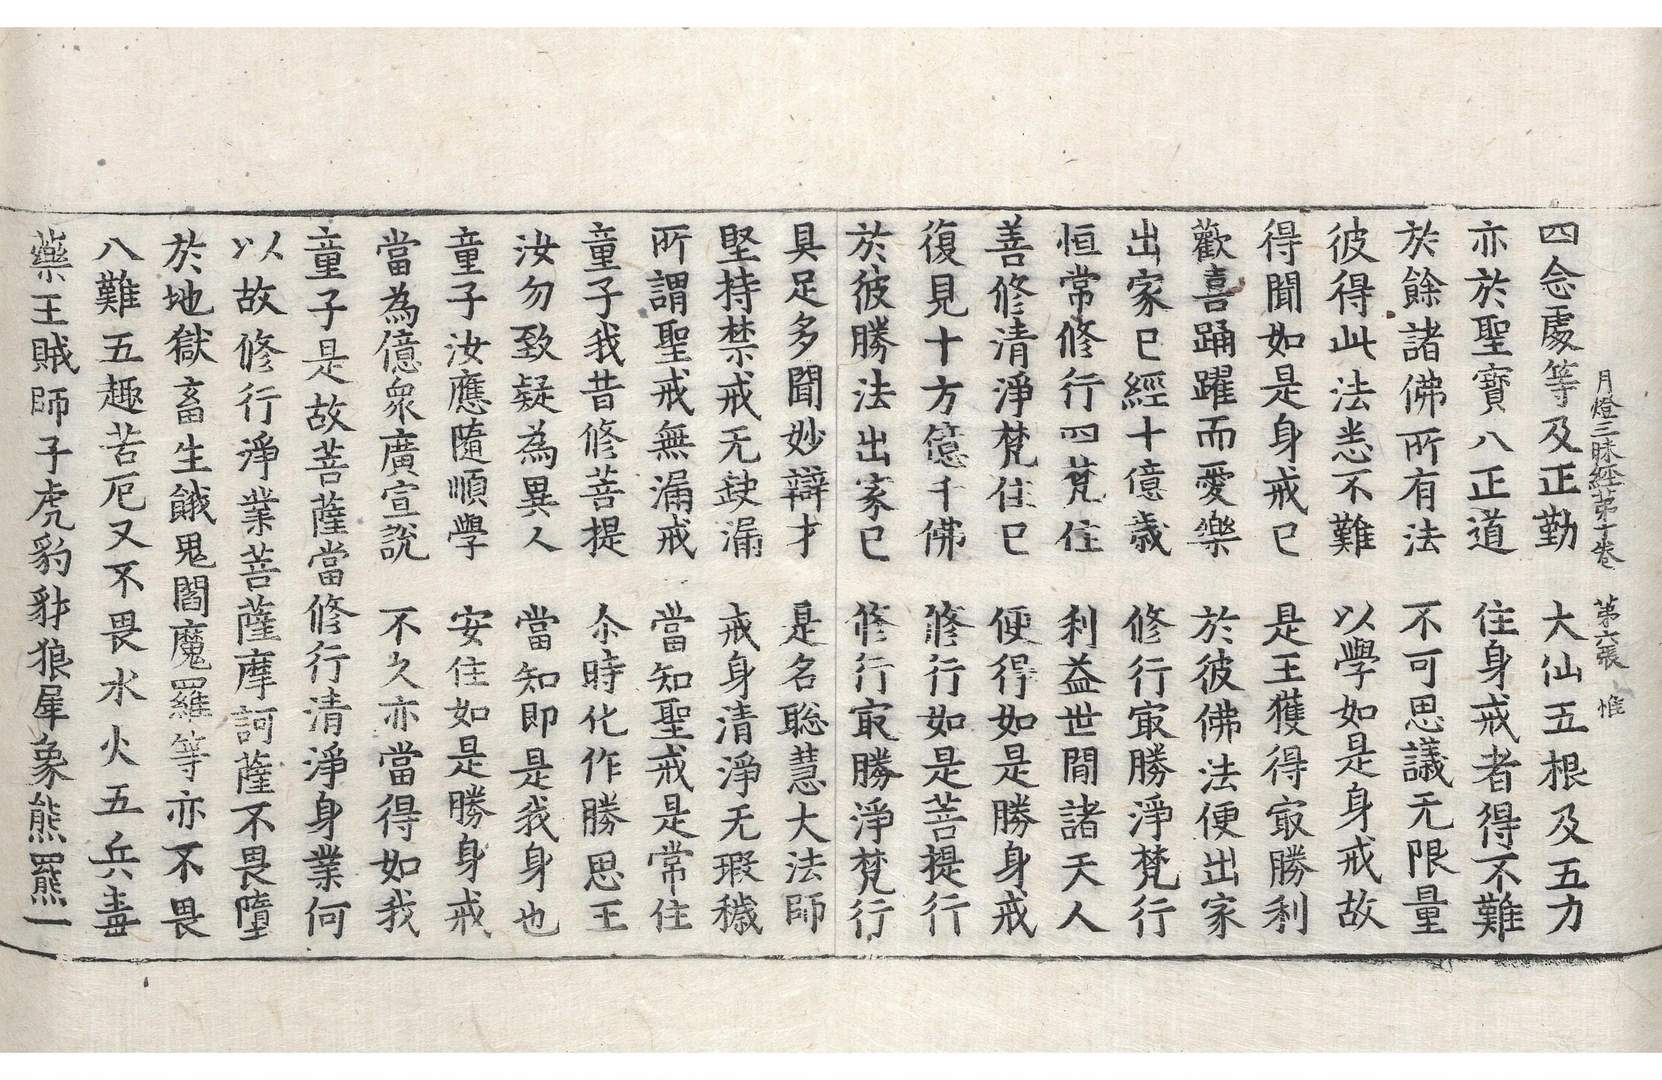 月燈三昧經第十卷　第六張　惟
四念處等及正勤　大仙五根及五力
亦於聖寶八正道　住身戒者得不難
於餘諸佛所有法　不可思議无限量
彼得此法悉不難　以學如是身戒故
得聞如是身戒已　是王獲得㝡勝利
歡喜踊躍而愛樂　於彼佛法便出家
出家已經十億歲　修行㝡勝淨梵行
恒常修行四梵住　利益世間諸天人
善修清淨梵住已　便得如是勝身戒
復見十方億千佛　修行如是菩提行
於彼勝法出家已　修行㝡勝淨梵行
具足多聞妙辯才　是名聡慧大法師
堅持禁戒无缺漏　戒身清淨无瑕穢
所謂聖戒無漏戒　當知聖戒是常住
童子我昔修菩提　尒時化作勝思王
汝勿致疑為異人　當知即是我身也
童子汝應隨順學　安住如是勝身戒
當為億衆廣宣說　不久亦當得如我
童子是故菩薩當修行清淨身業何
以故修行淨業菩薩摩訶薩不畏墮
於地獄畜生餓鬼閻魔羅等亦不畏
八難五趣苦厄又不畏水火五兵毒
藥王賊師子虎豹豺狼犀象熊羆一